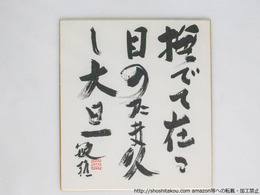 撫でて在る
目のたま久
し大旦 敏雄
http://shoshitakou.com amazon等への転載・加工禁止